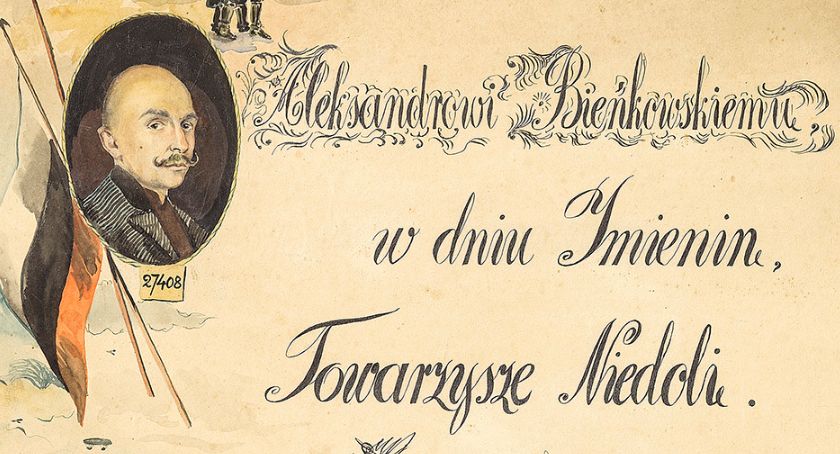 Aleksandrowi Bieńkowskiemu,
w dniu Imienin,
Towarzysze Niedoli.
27408